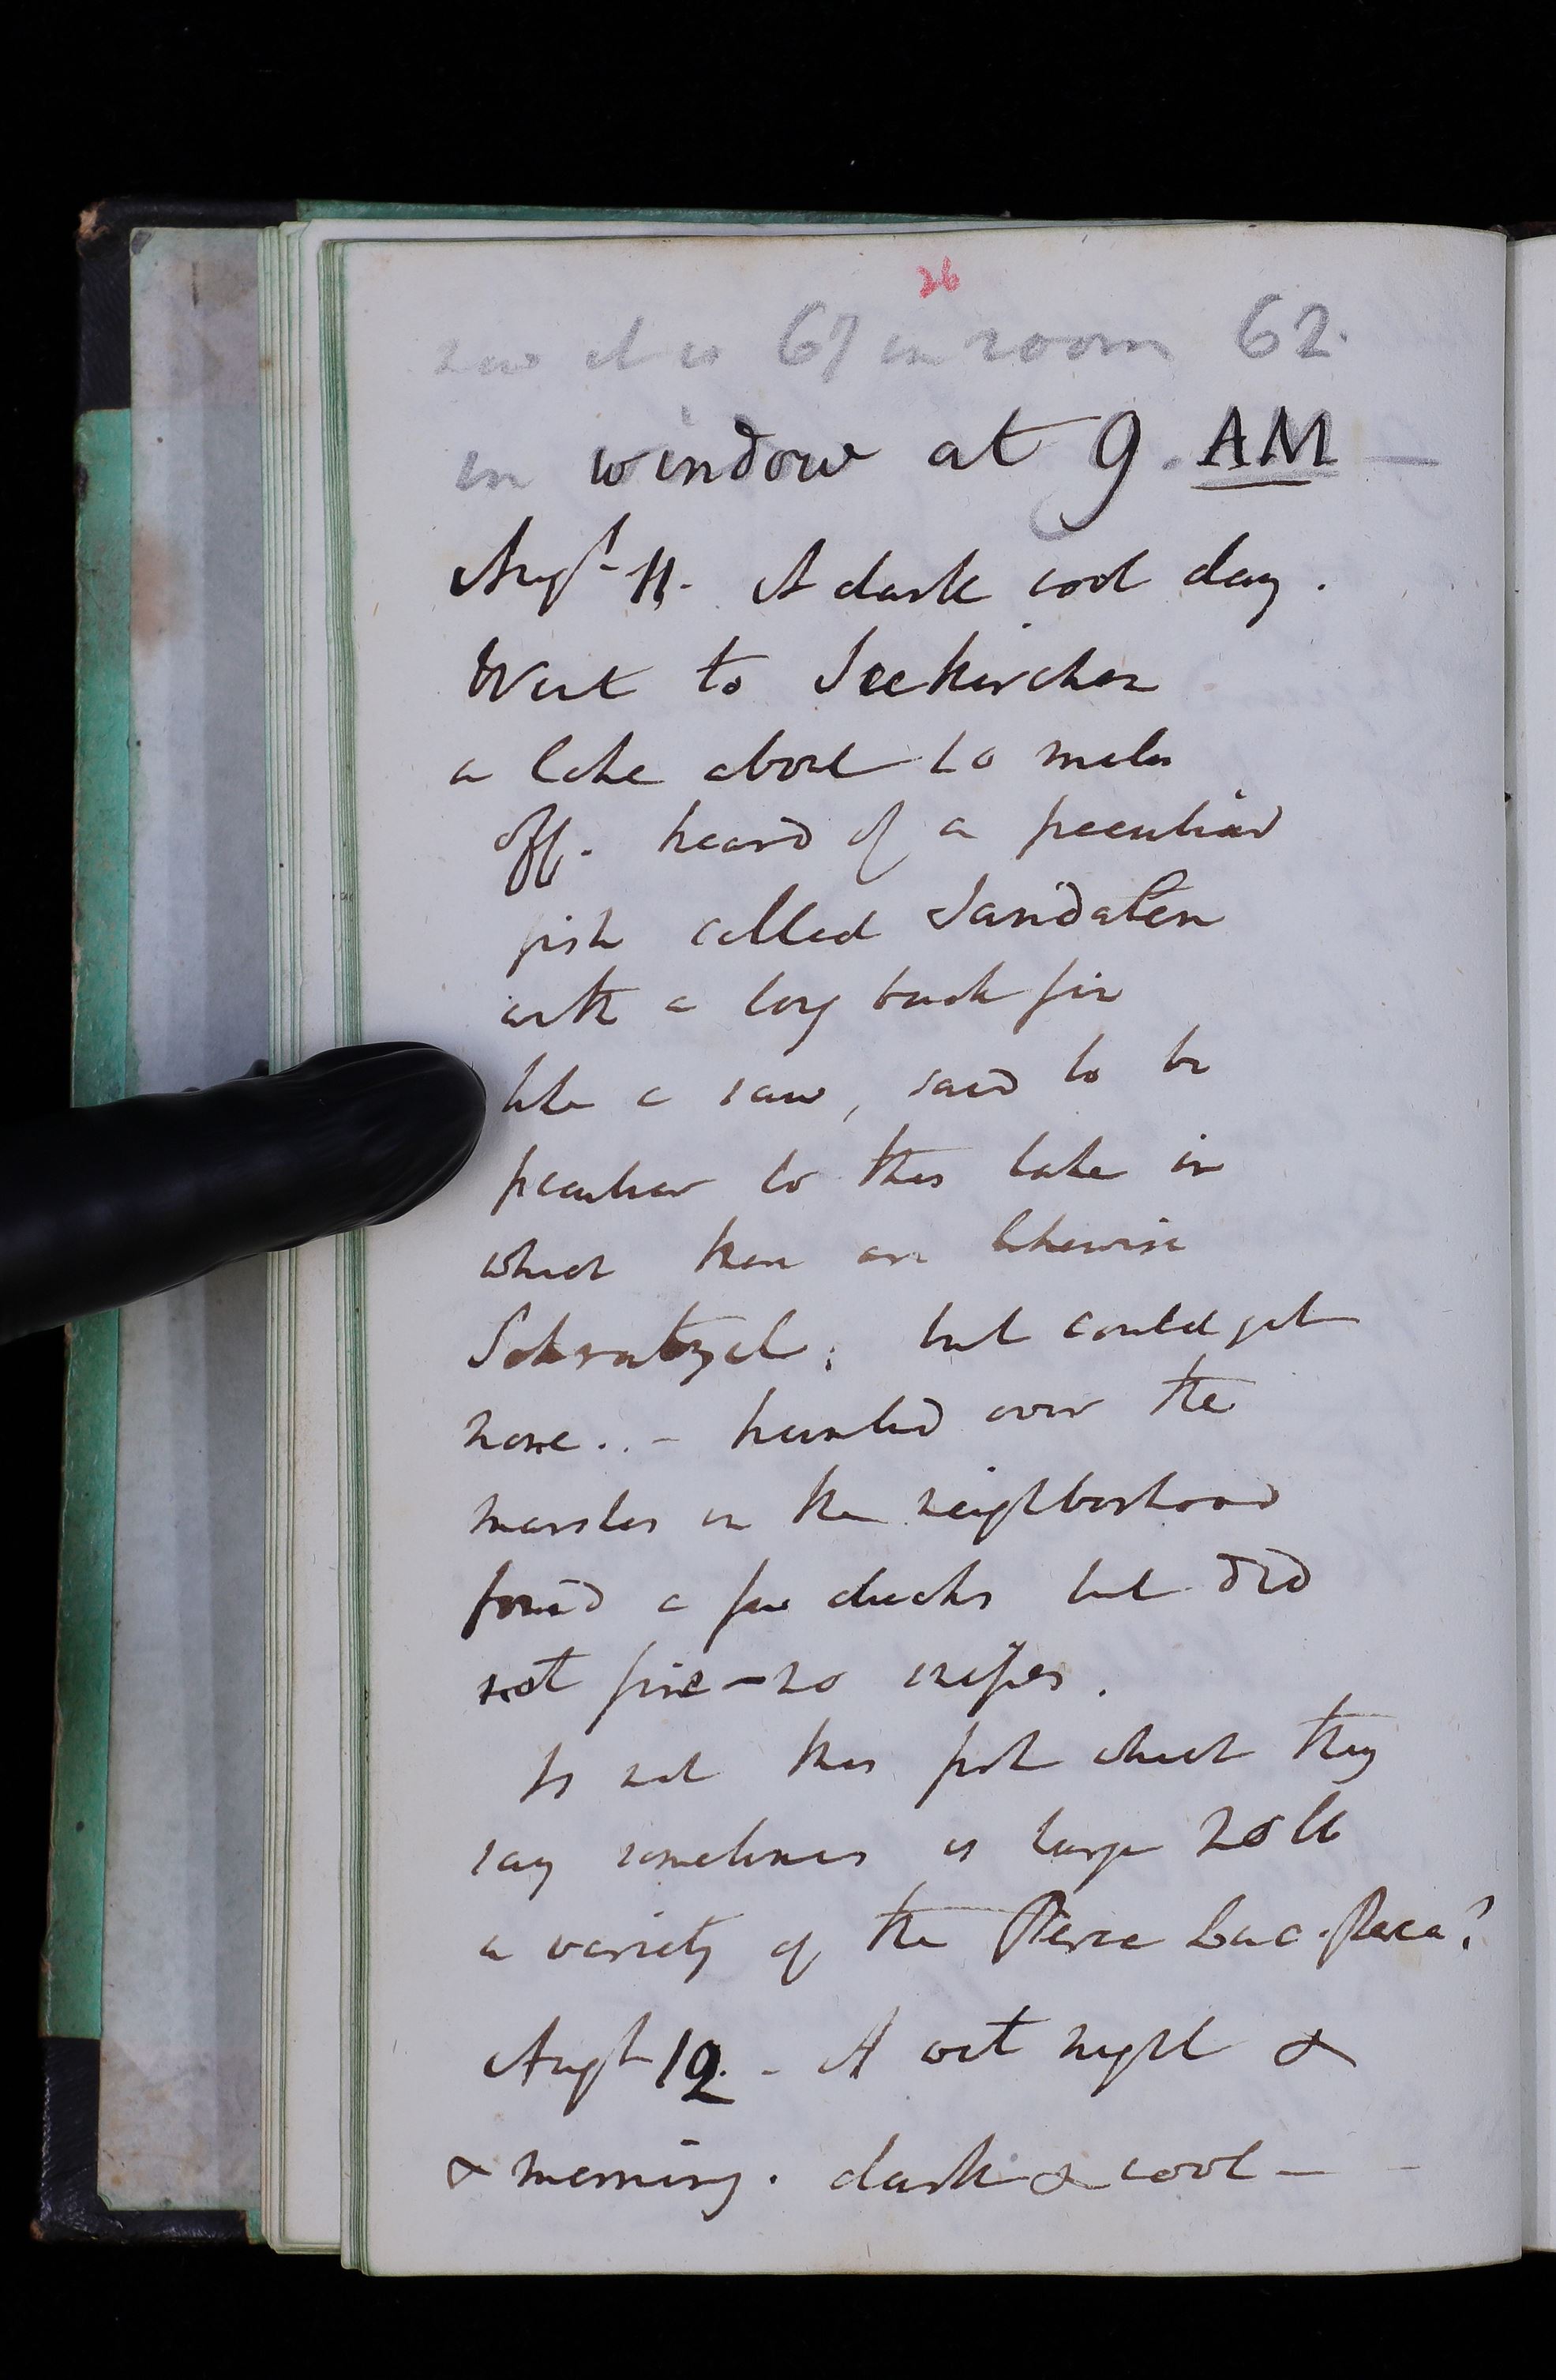 26
now it is 67 in room 62.
in window at 9. AM —
Augst 11. A dark cool day.
Went to Seekirchen
a lake about 10 miles
off. heard of a peculiar
fish called Sandaten
with a long back fin
like a saw, said to be
peculiar to this lake in
which there are likewise
Schratzel; but could get
none.. - hunted over the
marshes in the neighborhood
found a few ducks but did
not fire - no snipes.
Is not this fish which they
say sometimes is large 20 lb
a variety of the Perca Luc-Perca?
Augst 12. - A wet night &
& morning. dark & cool -